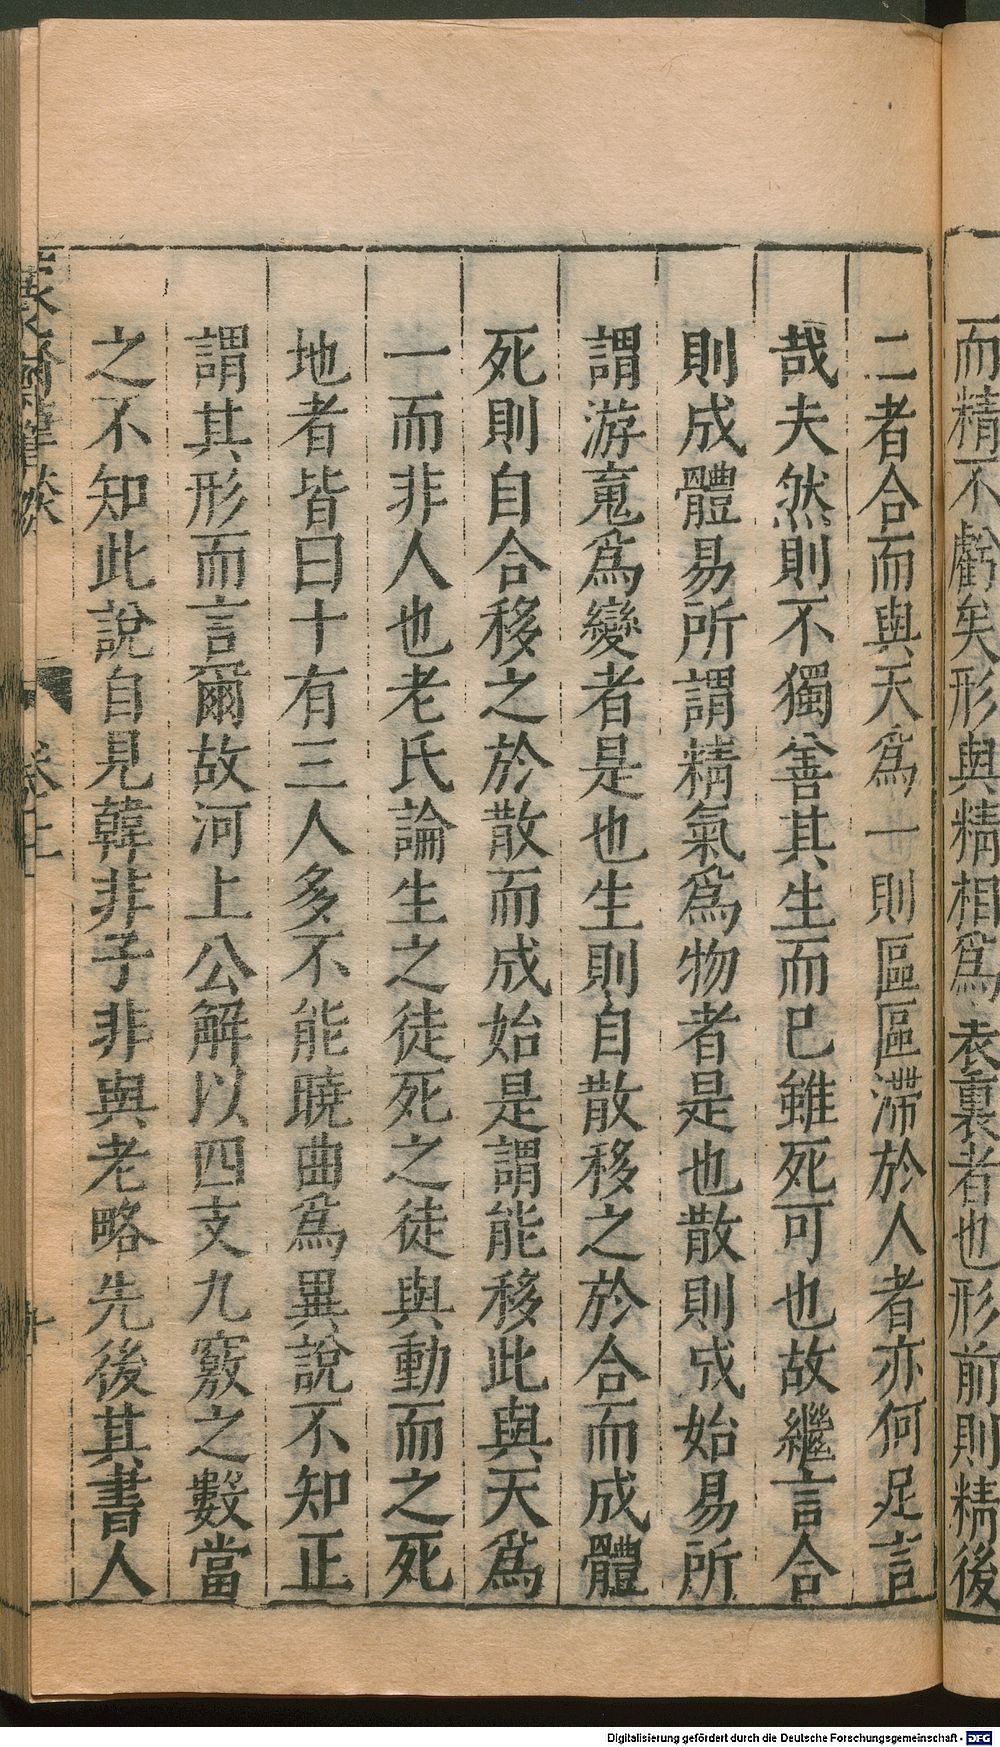 而精不虧矣形與精相爲表裏者也形前則精後
二者合而與天爲一則區區滯於人者亦何足言
哉夫然則不獨善其生而已雖死可也故繼言合
則成體易所謂精氣爲物者是也散則成始易所
謂游䰟爲變者是也生則自散移之於合而成體
死則自合移之於散而成始是謂能移此與天爲
一而非人也老氏論生之徒死之徒與動而之死
地者皆曰十有三人多不能曉曲爲異說不知正
謂其形而言爾故河上公解以四支九竅之數當
之不知此說自見韓非子非與老略先後其書人
Digitalisierung gefördert durch die Deutsche Forschungsgemeinschaft - DFG